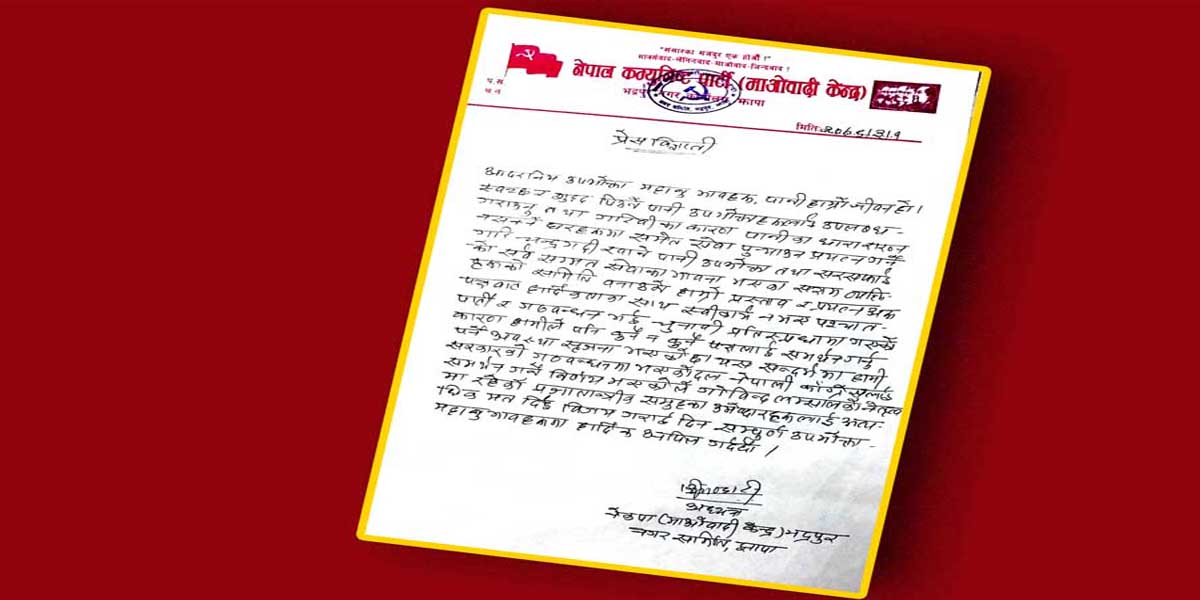 "संसारका मजदुर एक होऔं!"
मार्क्सवाद-लेनिनवाद-माओवाद-जिन्दवाद!
नेपाल कम्युनिष्ट पार्टी (माओवादी केन्द्र)
भद्रपुर नगर झापा
प.स.
च.न.
मिति:
प्रेस विज्ञप्ती
आदरनिय उपभोक्ता महानुभावहरू, पानी हाम्रो जीवन हो।
स्वच्छ र शुद्ध पिउने पानी उपभोक्ताहरूलाई उपलब्ध-
गराउनु तथा गरिवीका कारण पानीका धारा
नसक्ने घरहरूमा समेत सेवा पुर्‍याउन प्रयत्न गर्ने
गरि चन्द्रगढी खाने पानी उपभोक्ता तथा सरसफाई
को सर्व सम्मत सेवाका भावना भएका सक्षम व्यक्ति-
हरूको समिति वनाउने हाम्रो प्रस्ताव र प्रयत्न
साथ स्वीकार्य न भए पश्चात-
पार्टी र गठवन्धन भई चुनावी प्रतिस्प्रधामा गएको
कारण हामीले पनि कुनै न कुनै समर्थन गर्नु
पर्ने अवस्था सृजना भएको छ। यस सन्दर्भमा हामी
सरकारको गठवन्धनमा भएको दल नेपाली काँग्रेसलाई
समर्थन गर्ने निर्णय भएकोले गोविन्द लम्सालको नेतृत्व
मा रहेको प्रजातान्त्रीक समुहका उमेद्वारहरूलाई अत्य-
धिक मत दिई विजय गराई दिन सम्पूर्ण उपभोक्ता-
महानुभावहरूमा हार्दिक अपिल गर्दछौं।
अध्यक्ष
नेकपा (माओवादी केन्द्र) भद्रपुर
नगर समिति, झापा